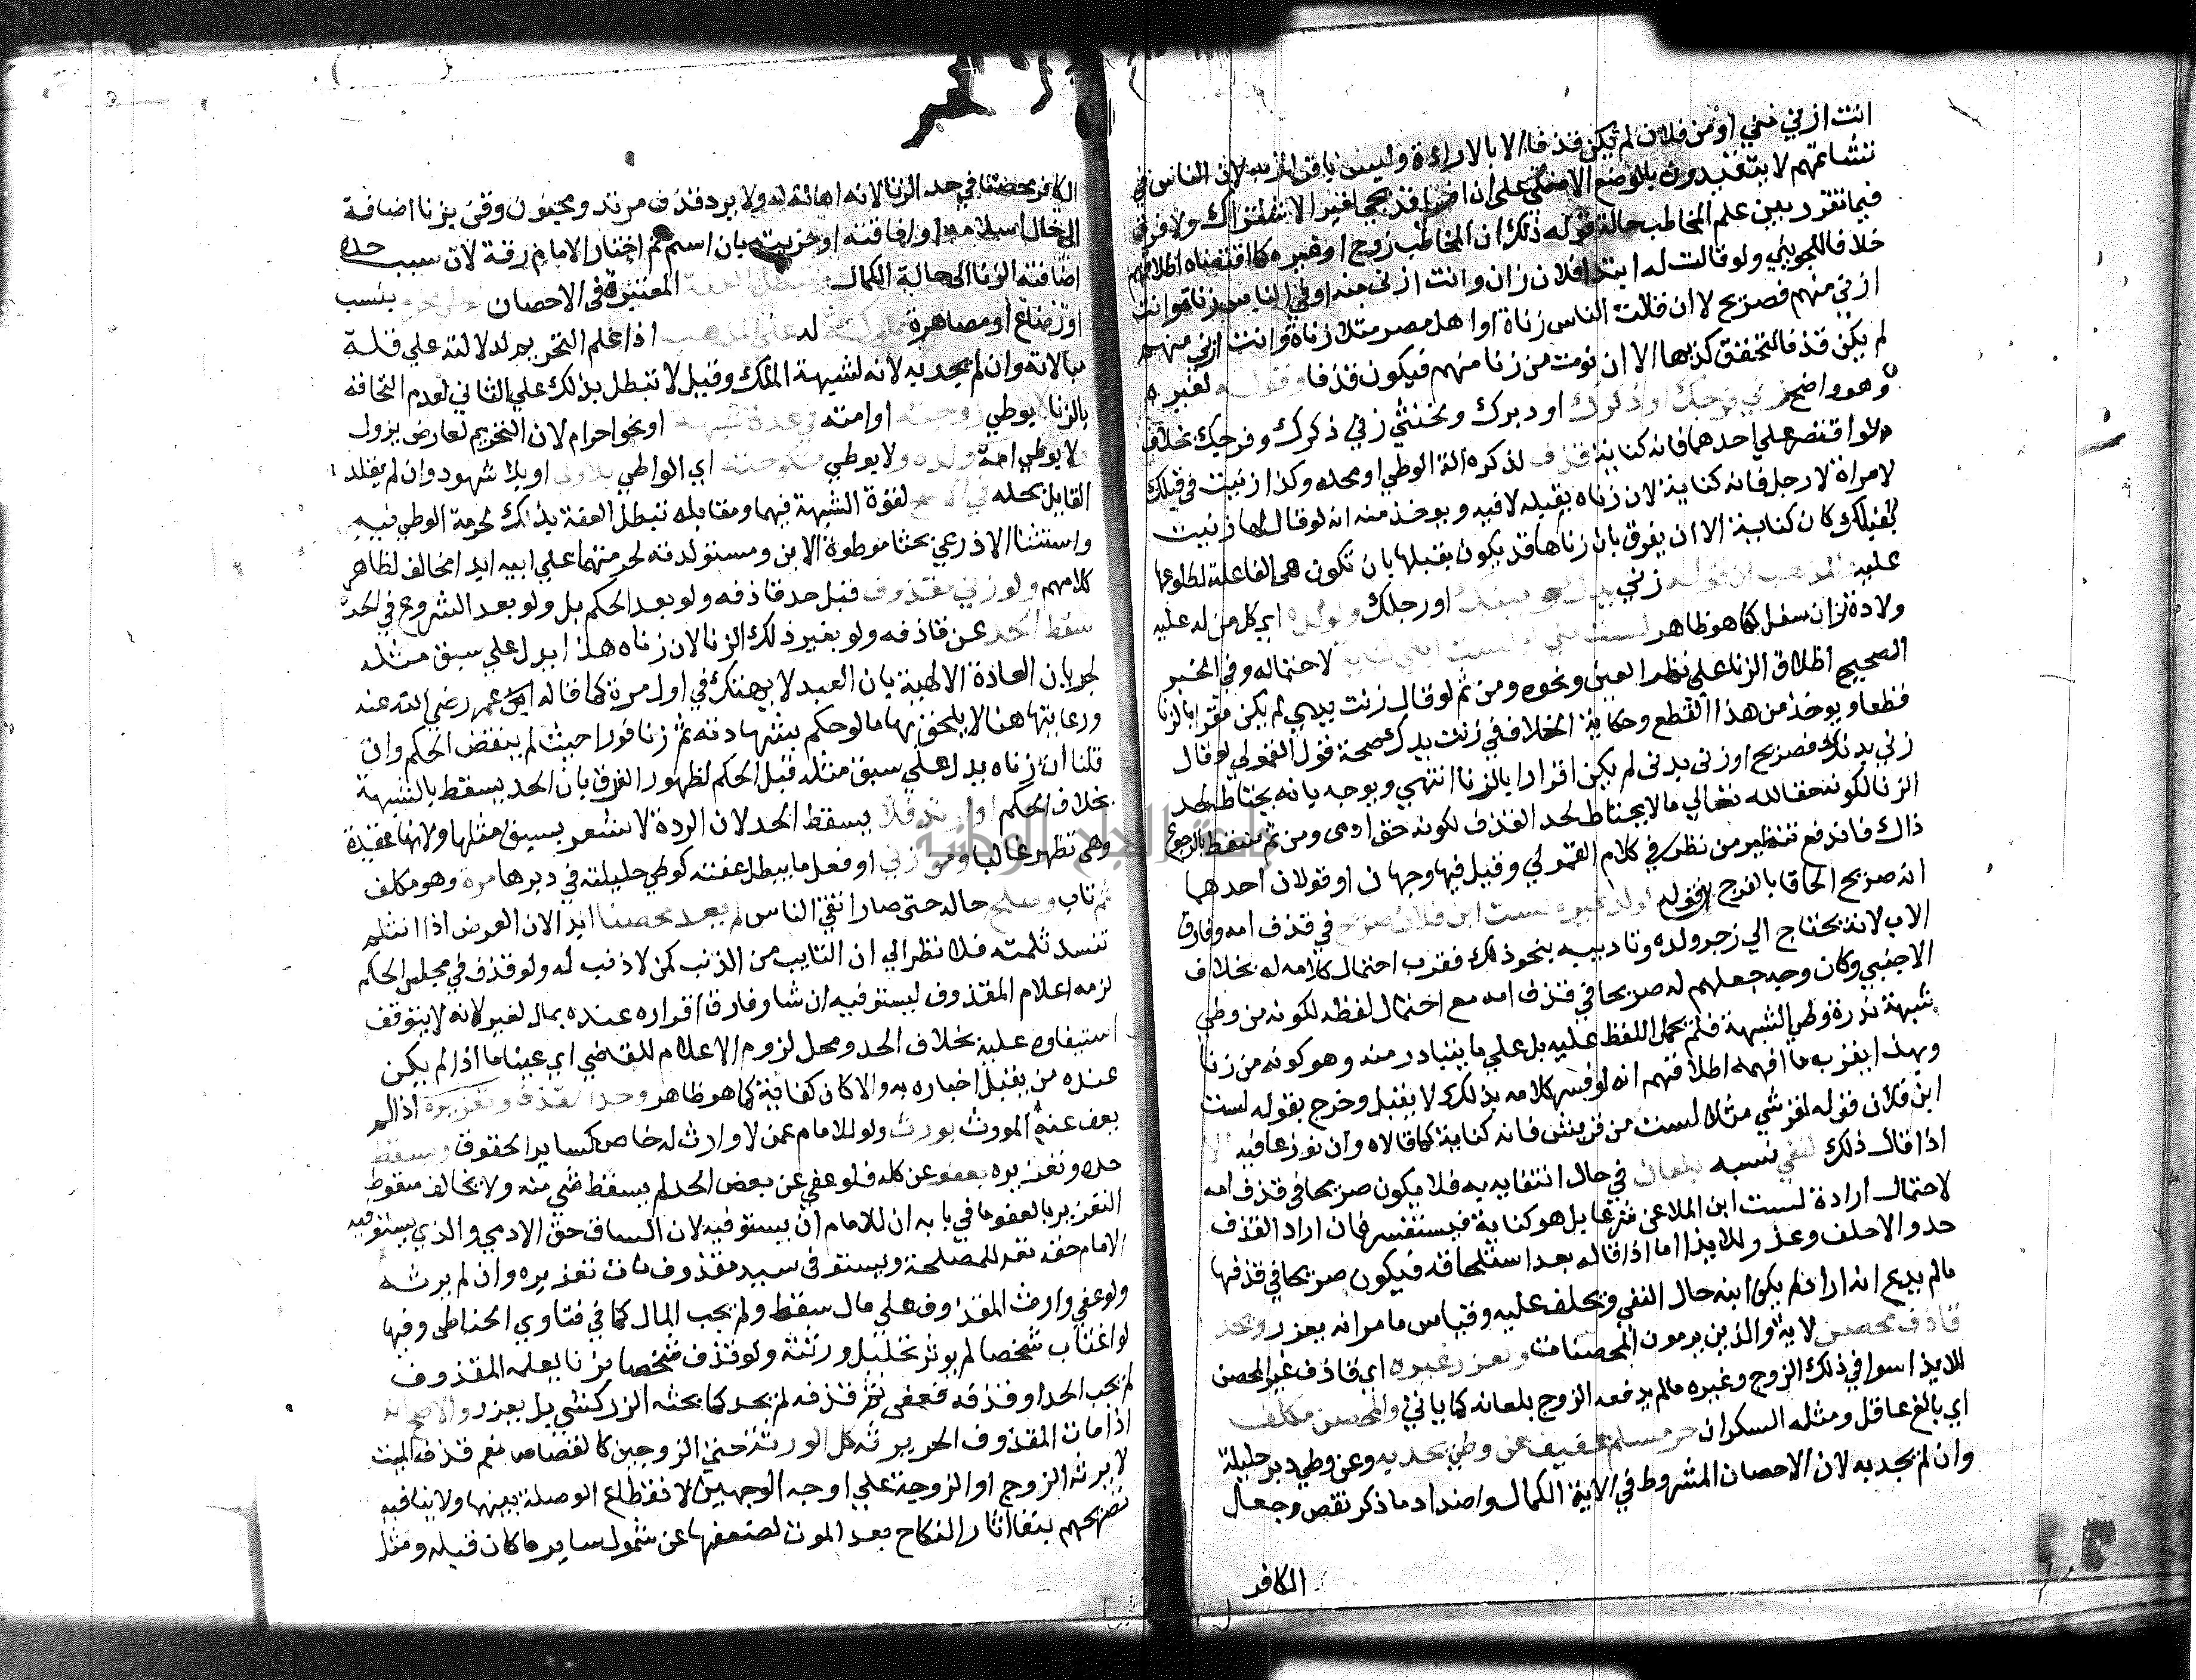 انت ازني مني او من فلان لم يكن قذفا الا بالارادة وليس باقرار به لان الناس في
تشاتمهم لا يتقيدون بالوضع الاصلي على ان افعل قد يجي لغير الاشتراك ولا فرق
فيما تقرر بين علم المخاطب حالة قوله ذلك ان المخاطب زوج او غيره كما اقتضاه اطلاقهم
خلافا للجويني ولو قالت له ابتدا فلان زان وانت ازنى منه او في الناس زناة وانت
ازني منهم فصريح لا ان قالت الناس زناة او اهل مصر مثلا زناة وانت ازني منهم
لم يكن قذفا لتحقق كذبها الا ان نوت من زنا منهم فيكون قذفا وقوله لغيره
وهو واضح زني فرجك او ذكرك او دبرك ولخنثى زني ذكرك وفرجك بخلاف
ما لو اقتصر على احدهما فانه كناية قذف لذكره الة الوطي او محله وكذا زنيت في قبلك
لامراة لا رجل فانه كناية لان زناه بقبله لا فيه ويوخذ منه انه لو قال لها زنيت
بقبلك كان كناية الا ان يفرق بان زناها قد يكون بقبلها بان تكون هي الفاعلة لطلوعها
عليه المذهب ان قوله زني يدك وعينك او رجلك ولولده اي كل من له عليه
ولادة وان سفل كما هو ظاهر لست مني او لست ابني كناية لاحتماله وفي الخبر
الصحيح اطلاق الزنا على نظر العين ونحوه ومن ثم لو قال زنت يدي لم يكن مقرا بالزنا
قطعا ويوخذ من هذا القطع وحكاية الخلاف في زنت يدك صحة قول القمولي لو قال
زني بدنك فصريح او زنى بدني لم يكن اقرارا بالزنا انتهي ويوجه بانه يحتاط لحد
الزنا لكونه حقا لله تعالي ما لا يحتاط لحد القذف لكونه حق ادمى ومن ثم سقط بالرجوع
ذاك فاندفع تنظير من نظر في كلام القمولي وقيل فيها وجهان او قولان احدهما
انه صريح الحاقا بالفرج وقوله لولد غيره لست ابن فلان صريح في قذف امه وفارق
الاب لانه يحتاج الي زجر ولده وتاديبه بنحو ذلك فقرب احتمال كلامه له بخلاف
الاجنبي وكان وجه جعلهم له صريحا في قذف امه مع احتمال لفظه لكونه من وطي
شبهة ندرة وطي الشبهة فلم يحمل اللفظ عليه بل علي ما يتبادر منه وهو كونه من زنا
وبهذا يقرب ما افهمه اطلاقهم انه لو فسر كلامه بذلك لا يقبل وخرج بقوله لست
ابن فلان قوله لقرشي مثلا لست من قريش فانه كناية كما قالاه وان نوزعا فيه الا
اذا قال ذلك لمنفي نسبه بلعان في حال انتفايه به فلا يكون صريحا في قذف امه
لاحتمال ارادة لست ابن الملاعن شرعا بل هو كناية فيستفسر فان اراد القذف
حد والا حلف وعذر للايذا اما اذا قاله بعد استلحاقه فيكون صريحا في قذفها
مالم يدع انه اراد لم يكن ابنه حال النفي ويحلف عليه وقياس ما مر انه يعزر ويحد
قاذف محصن لاية والذين يرمون المحصنات ويعزر غيره اي قاذف غير المحصن
للايذا سوا في ذلك الزوج وغيره مالم يدفعه الزوج بلعانه كما ياتي والمحصن مكلف
اي بالغ عاقل ومثله السكران حر مسلم عفيف عن وطي يحد به وعن وطي دبر حليلة
وان لم يحد به لان الاحصان المشروط في الاية الكمال واضداد ما ذكر نقص وجعل
الكافر
الكافر محصنا في حد الزنا لانه اهانة له ولا يرد قذف مرتد ومجنون وقن بزنا اضافه
الى حال اسلامه او افاقته او حريته بان اسلم ثم اختار الامام رقه لان سبب حده
اضافته الزنا الى حالة الكمال وتبطل العفة المعتبرة في الاحصان بوطي محرم بنسب
او رضاع او مصاهرة مملوكة له على المذهب اذا علم التحريم لدلالته علي قلة
مبالاته وان لم يحد به لانه لشبهة الملك وقيل لا تبطل بذلك علي الثاني لعدم التحاقه
بالزنا لا بوطي زوجته او امته في عدة شبهة او نحو احرام لان التحريم لعارض يزول
ولا بوطي امة ولده ولا بوطي منكوحته اي الواطي بلا ولي او بلا شهود وان لم يقلد
القايل بحله في الاصح لقوة الشبهة فيهما ومقابله تبطل العفة بذلك لحرمة الوطي فيه
واستثنا الاذرعي بحثا موطوة الابن ومستولدته لحرمتهما علي ابيه ابدا مخالف لظاهر
كلامهم ولو زني مقذوف قبل حد قاذفه ولو بعد الحكم بل ولو بعد الشروع في الحد
سقط الحد عن قاذفه ولو بغير ذلك الزنا لان زناه هذا يدل علي سبق مثله
لجريان العادة الالهية بان العبد لا يهتك في اول مرة كما قاله عمر رضي الله عنه
ورعايتها هنا لا يلحق بها ما لو حكم بشهادته ثم زنا فورا حيث لم ينقض الحكم وان
قلنا ان زناه يدل علي سبق مثله قبل الحكم لظهور الفرق بان الحد يسقط بالشبهة
بخلاف الحكم او ارتد فلا يسقط الحد لان الردة لا تشعر بسبق مثلها ولانها عقيدة
وهي تظهر غالبا ومن زني او فعل ما يبطل عفته كوطي حليلته في دبرها مرة وهو مكلف
ثم تاب وصلح حاله حتى صار اتقى الناس لم يعد محصنا ابدا لان العرض اذا انثلم
لم تنسد ثلمته فلا نظر الي ان التايب من الذنب كمن لا ذنب له ولو قذف في مجلس الحاكم
لزمه اعلام المقذوف ليستوفيه ان شا وفارق اقراره عنده بمال لغير لانه لا يتوقف
استيفاوه عليه بخلاف الحد ومحل لزوم الاعلام للقاضي اي عينا ما اذا لم يكن
عنده من يقبل اخباره به والا كان كفاية كما هو ظاهر وحد القذف وتعزيره اذا لم
يعف عنه المورث يورث ولو للامام عمن لا وارث له خاص كساير الحقوق ويسقط
حده وتعزيره بعفو عن كله فلو عفي عن بعض الحد لم يسقط شي منه ولا يخالف سقوط
التعزير بالعفو ما في بابه ان للامام ان يستوفيه لان الساقط حق الادمي والذي يستوفيه
الامام حق الله للمصلحة ويستوفى سيد مقذوف مات تعزيره وان لم يرثه
ولو عفي وارث المقذوف علي مال سقط ولم يجب المال كما في فتاوي الحناطي وفيها
لو اغتاب شخصا لم يوثر تحليل ورثته ولو قذف شخصا بزنا يعلمه المقذوف
لم يجب الحد او قذفه فعفى ثم قذفه لم يحد كما بحثه الزركشي بل يعزر والاصح انه
اذا مات المقذوف الحر يرثه كل الورثة حتى الزوجين كالقصاص نعم قذف الميت
لا يرثه الزوج او الزوجة علي اوجه الوجهين لانقطاع الوصلة بينهما ولا ينافيه
تصريحهم ببقا اثار النكاح بعد الموت لضعفها عن شمول ساير ما كان قبله ومثل